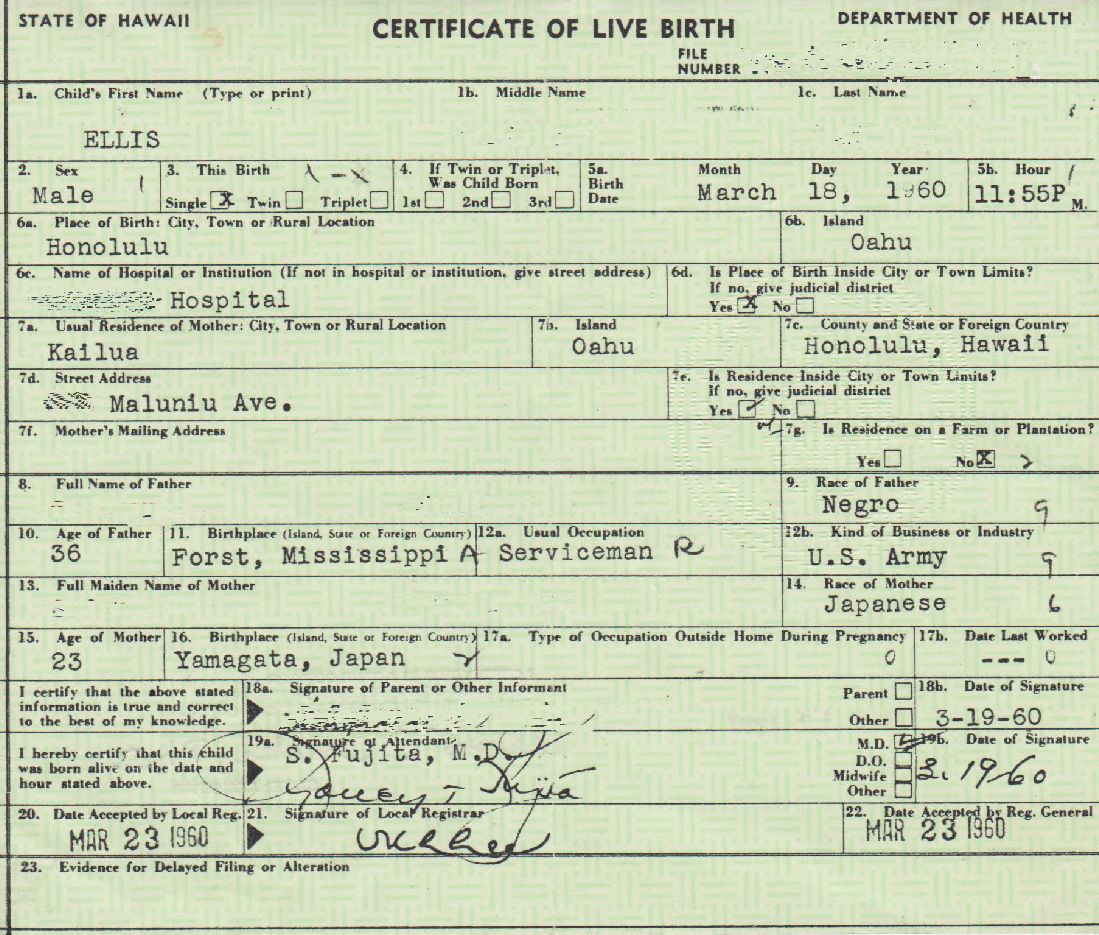 STATE OF HAWAII
CERTIFICATE OF LIVE BIRTH
DEPARTMENT OF HEALTH
FILE NUMBER
1a. Child's First Name (Type or print) 1b. Middle Name 1c. Last Name
ELLIS
2. Sex 3. This Birth 4. If Twin or Triplet, Was Child Born 5a. Birth Date Month Day Year 5b. Hour
Male Single X Twin Triplet 1st 2nd 3rd March 18, 1960 11:55P M.
6a. Place of Birth: City, Town or Rural Location 6b. Island
Honolulu Oahu
6c. Name of Hospital or Institution (If not in hospital or institution, give street address) 6d. Is Place of Birth Inside City or Town Limits?
If no, give judicial district
Hospital Yes X No
7a. Usual Residence of Mother: City, Town or Rural Location 7b. Island 7c. County and State or Foreign Country
Kailua Oahu Honolulu, Hawaii
7d. Street Address 7e. Is Residence Inside City or Town Limits?
If no, give judicial district
Maluniu Ave. Yes No
7f. Mother's Mailing Address 7g. Is Residence on a Farm or Plantation?
Yes No X
8. Full Name of Father 9. Race of Father
Negro 9
10. Age of Father 11. Birthplace (Island, State or Foreign Country) 12a. Usual Occupation 12b. Kind of Business or Industry
36 Forst, Mississippi A Serviceman R U.S. Army 9
13. Full Maiden Name of Mother 14. Race of Mother
Japanese 6
15. Age of Mother 16. Birthplace (Island, State or Foreign Country) 17a. Type of Occupation Outside Home During Pregnancy 17b. Date Last Worked
23 Yamagata, Japan 0 --- 0
I certify that the above stated information is true and correct to the best of my knowledge.
18a. Signature of Parent or Other Informant Parent Other 18b. Date of Signature
3-19-60
I hereby certify that this child was born alive on the date and hour stated above.
19a. Signature of Attendant M.D. D.O. Midwife Other 19b. Date of Signature
S. Fujita, M.D. 3.19-60
20. Date Accepted by Local Reg. 21. Signature of Local Registrar 22. Date Accepted by Reg. General
MAR 23 1960 MAR 23 1960
23. Evidence for Delayed Filing or Alteration